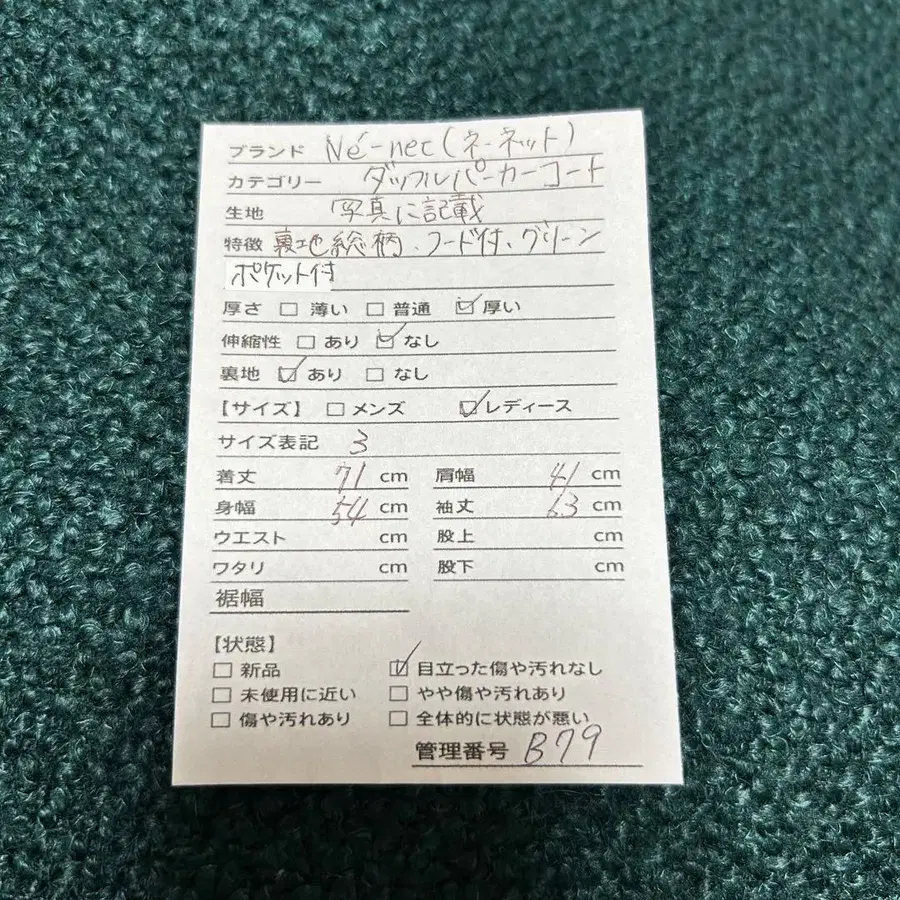 ブランド Né-net(ネ・ネット)
カテゴリー ダッフルパーカーコート
生地 写真に記載
特徴 裏地総柄、フード付、グリーン
ポケット付
厚さ □ 薄い □ 普通 ☑ 厚い
伸縮性 □ あり ☑ なし
裏地 ☑ あり □ なし
【サイズ】 □ メンズ ☑ レディース
サイズ表記 3
着丈 71 cm 肩幅 41 cm
身幅 54 cm 袖丈 63 cm
ウエスト cm 股上 cm
ワタリ cm 股下 cm
裾幅
【状態】
□ 新品 ☑ 目立った傷や汚れなし
□ 未使用に近い □ やや傷や汚れあり
□ 傷や汚れあり □ 全体的に状態が悪い
管理番号 B79